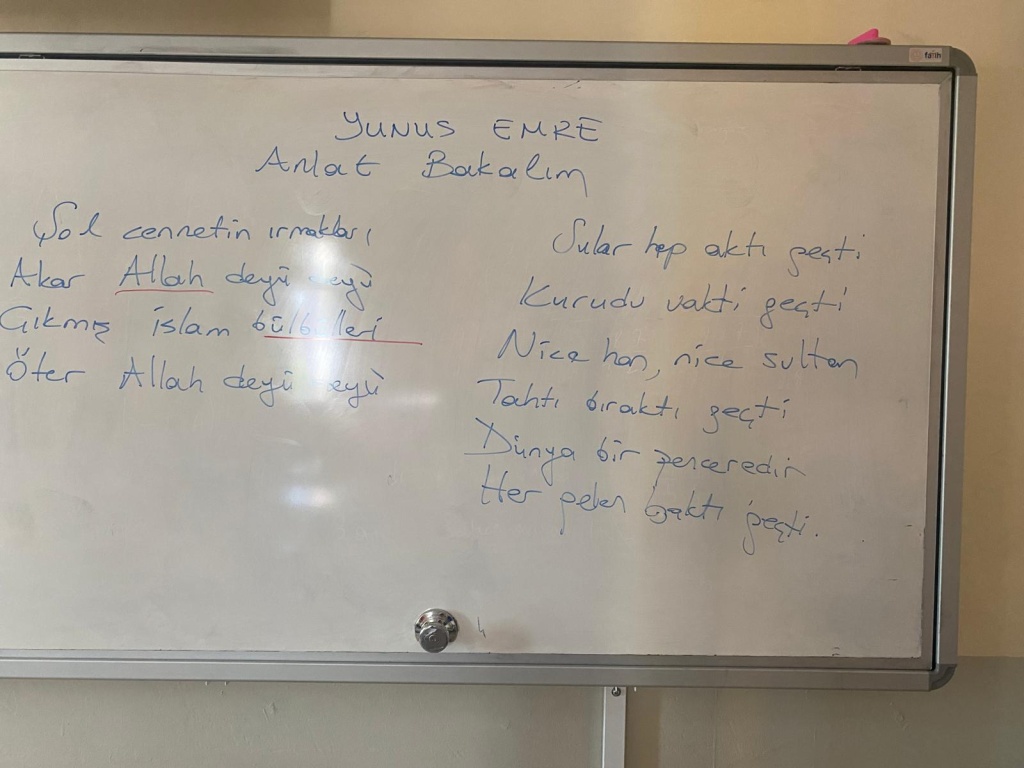 YUNUS EMRE
Anlat Bakalım
Şol cennetin ırmakları
Akar Allah deyü deyü
Çıkmış islam bülbülleri
Öter Allah deyü deyü
Sular hep aktı geçti
Kurudu vakti geçti
Nice han, nice sultan
Tahtı bıraktı geçti
Dünya bir penceredir
Her gelen baktı geçti.
fatih